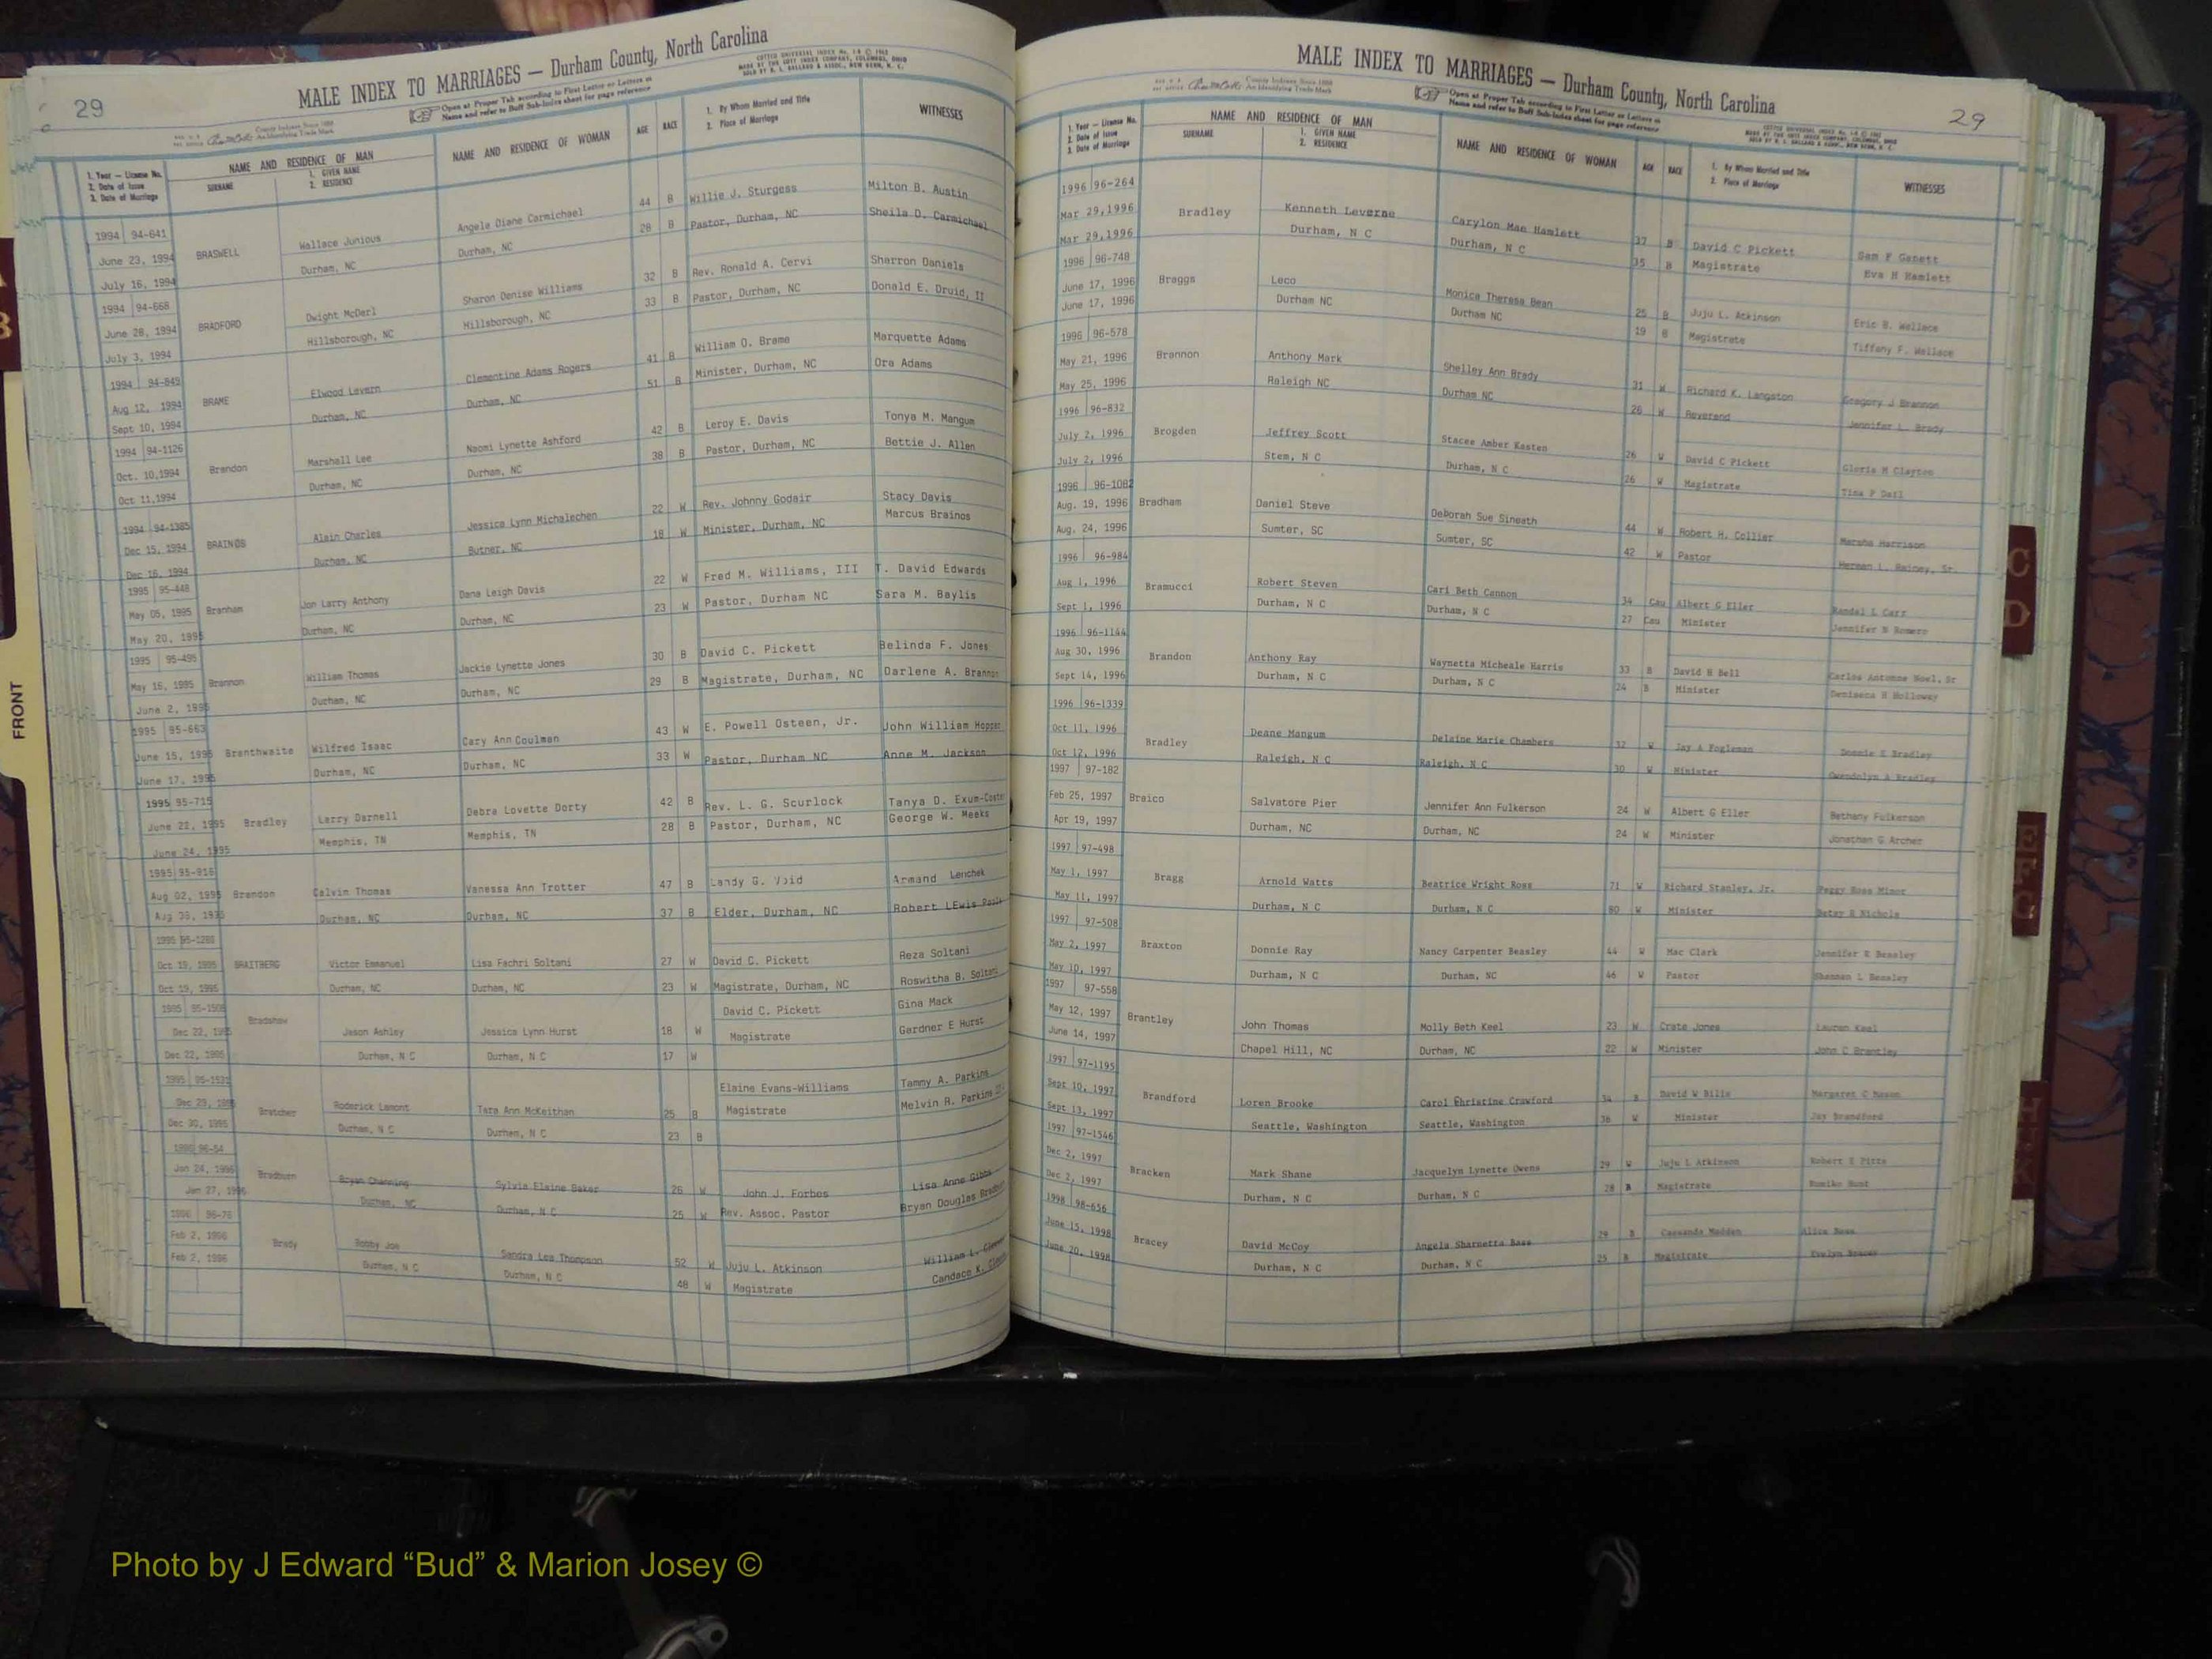 29
MALE INDEX TO MARRIAGES — Durham County, North Carolina
Open at Proper Tab according to First Letter or Letters of
Name and refer to Buff Sub-Index sheet for page reference
COTT'S UNIVERSAL INDEX No. 1-A © 1962
MADE BY THE COTT INDEX COMPANY, COLUMBUS, OHIO
County Indexes Since 1888
An Identifying Trade Mark
1. Year — License No.
2. Date of Issue
3. Date of Marriage
NAME AND RESIDENCE OF MAN
SURNAME
1. GIVEN NAME
2. RESIDENCE
NAME AND RESIDENCE OF WOMAN
AGE
RACE
1. By Whom Married and Title
2. Place of Marriage
WITNESSES
1994 94-641 BRASWELL Wallace Junious Angela Diane Carmichael 44 B Willie J. Sturgess Milton B. Austin
June 23, 1994 Durham, NC Durham, NC 28 B Pastor, Durham, NC Sheila D. Carmichael
July 16, 1994
1994 94-668 BRADFORD Dwight McDarl Sharon Denise Williams 32 B Rev. Ronald A. Cervi Sharron Daniels
June 28, 1994 Hillsborough, NC Hillsborough, NC 33 B Pastor, Durham, NC Donald E. Druid, II
July 3, 1994
1994 94-849 BRAME Elwood Levern Clementine Adams Rogers 41 B William O. Brame Marquette Adams
Aug 12, 1994 Durham, NC Durham, NC 51 B Minister, Durham, NC Ora Adams
Sept 10, 1994
1994 94-1126 Brandon Marshall Lee Naomi Lynette Ashford 42 B Leroy E. Davis Tonya M. Mangum
Oct. 10,1994 Durham, NC Durham, NC 38 B Pastor, Durham, NC Bettie J. Allen
Oct 11,1994
1994 94-1385 BRAINOS Alain Charles Jessica Lynn Michalechen 22 W Rev. Johnny Godair Stacy Davis
Dec 15, 1994 Durham, NC Butner, NC 18 W Minister, Durham, NC Marcus Brainos
Dec 16, 1994
1995 95-448 Branham Jon Larry Anthony Dana Leigh Davis 22 W Fred M. Williams, III T. David Edwards
May 05, 1995 Durham, NC Durham, NC 23 W Pastor, Durham NC Sara M. Baylis
May 20, 1995
1995 95-495 Brannon William Thomas Jackie Lynette Jones 30 B David C. Pickett Belinda F. Jones
May 16, 1995 Durham, NC Durham, NC 29 B Magistrate, Durham, NC Darlene A. Brannon
June 2, 1995
1995 95-663 Branthwaite Wilfred Isaac Cary Ann Coulman 43 W E. Powell Osteen, Jr. John William Hopper
June 15, 1995 Durham, NC Durham, NC 33 W Pastor, Durham NC Anne M. Jackson
June 17, 1995
1995 95-715 Bradley Larry Darnell Debra Lovette Dorty 42 B Rev. L. G. Scurlock Tanya D. Exum-Coster
June 22, 1995 Memphis, TN Memphis, TN 28 B Pastor, Durham, NC George W. Meeks
June 24, 1995
1995 95-916 Brandon Calvin Thomas Vanessa Ann Trotter 47 B Landy G. Armand Lenchek
Aug 02, 1995 Durham, NC Durham, NC 37 B Elder, Durham, NC Robert LEwis
1995 95-1288 BRAITBERG Victor Emmanuel Lisa Fachri Soltani 27 W David C. Pickett Reza Soltani
Oct 19, 1995 Durham, NC Durham, NC 23 W Magistrate, Durham, NC Roswitha B. Soltani
Oct 19, 1995
1995 95-1508 Bradshaw Jason Ashley Jessica Lynn Hurst 18 W David C. Pickett Gina Mack
Dec 22, 1995 Durham, N C Durham, N C 17 W Magistrate Gardner E Hurst
Dec 22, 1995
1995 95-1531 Bratcher Roderick Lamont Tara Ann McKeithan 25 B Elaine Evans-Williams Tammy A. Parkins
Dec 29, 1995 Durham, N C Durham, N C 23 B Magistrate Melvin R. Parkins III
Dec 30, 1995
1996 96-54 Bradburn Bryan Channing Sylvia Elaine Baker 26 W John J. Forbes Lisa Anne Gibbs
Jan 24, 1996 Durham, NC Durham, N C 25 W Rev. Assoc. Pastor Bryan Douglas Bradburn
Jan 27, 1996
1996 96-76 Brady Bobby Joe Sandra Lee Thompson 52 W Juju L. Atkinson William L.
Feb 2, 1996 Durham, N C Durham, N C 48 W Magistrate Candace K.
Feb 2, 1996
29
MALE INDEX TO MARRIAGES — Durham County, North Carolina
Open at Proper Tab according to First Letter or Letters of
Name and refer to Buff Sub-Index sheet for page reference
County Indexes Since 1888
An Identifying Trade Mark
1. Year — License No.
2. Date of Issue
3. Date of Marriage
NAME AND RESIDENCE OF MAN
SURNAME
1. GIVEN NAME
2. RESIDENCE
NAME AND RESIDENCE OF WOMAN
AGE
RACE
1. By Whom Married and Title
2. Place of Marriage
WITNESSES
1996 96-264 Bradley Kenneth Leverne Carylon Mae Hamlett 37 B David C Pickett Sam F Ganett
Mar 29,1996 Durham, N C Durham, N C 35 B Magistrate Eva H Hamlett
Mar 29,1996
1996 96-748 Braggs Leco Monica Theresa Bean 25 B Juju L. Atkinson Eric B. Wallace
June 17, 1996 Durham NC Durham NC 19 B Magistrate Tiffany F. Wallace
June 17, 1996
1996 96-578 Brannon Anthony Mark Shelley Ann Brady 31 W Richard K. Langston Gregory J Brannon
May 21, 1996 Raleigh NC Durham NC 26 W Reverend Jennifer L. Brady
May 25, 1996
1996 96-832 Brogden Jeffrey Scott Stacee Amber Kasten 26 W David C Pickett Gloria M Clayton
July 2, 1996 Stem, N C Durham, N C 26 W Magistrate Tina P Dail
July 2, 1996
1996 96-1082 Bradham Daniel Steve Deborah Sue Sineath 44 W Robert H. Collier Marsha Harrison
Aug. 19, 1996 Sumter, SC Sumter, SC 42 W Pastor Herman L. Rainey, Sr
Aug. 24, 1996
1996 96-984 Bramucci Robert Steven Cari Beth Cannon 34 Cau Albert G Eller Randal L Carr
Aug 1, 1996 Durham, N C Durham, N C 27 Cau Minister Jennifer N Romero
Sept 1, 1996
1996 96-1144 Brandon Anthony Ray Waynetta Micheale Harris 33 B David H Bell Carlos Antonne Noel, Sr
Aug 30, 1996 Durham, N C Durham, N C 24 B Minister Deniseca H Holloway
Sept 14, 1996
1996 96-1339 Bradley Deane Mangum Delaine Marie Chambers 32 W Jay A Fogleman Donnie E Bradley
Oct 11, 1996 Raleigh, N C Raleigh, N C 30 W Minister Gwendolyn A Bradley
Oct 12, 1996
1997 97-182 Braico Salvatore Pier Jennifer Ann Fulkerson 24 W Albert G Eller Bethany Fulkerson
Feb 25, 1997 Durham, NC Durham, NC 24 W Minister Jonathan G Archer
Apr 19, 1997
1997 97-498 Bragg Arnold Watts Beatrice Wright Ross 71 W Richard Stanley, Jr. Peggy Ross Minor
May 1, 1997 Durham, N C Durham, N C 80 W Minister Betsy R Nichols
May 11, 1997
1997 97-508 Braxton Donnie Ray Nancy Carpenter Beasley 44 W Mac Clark Jennifer R Beasley
May 2, 1997 Durham, N C Durham, NC 46 W Pastor Shannan L Beasley
May 10, 1997
1997 97-558 Brantley John Thomas Molly Beth Keel 23 W Crate Jones Lauren Keel
May 12, 1997 Chapel Hill, NC Durham, NC 22 W Minister John C Brantley
June 14, 1997
1997 97-1195 Brandford Loren Brooke Carol Christine Crawford 34 B David W Bills Margaret C Mason
Sept 10, 1997 Seattle, Washington Seattle, Washington 36 W Minister Jay Brandford
Sept 13, 1997
1997 97-1546 Bracken Mark Shane Jacquelyn Lynette Owens 29 W Juju L Atkinson Robert E Pitts
Dec 2, 1997 Durham, N C Durham, N C 28 B Magistrate Rumiko Hunt
Dec 2, 1997
1998 98-656 Bracey David McCoy Angela Sharnetta Bass 29 B Cassands Madden Alice Bass
June 15, 1998 Durham, N C Durham, N C 25 B Magistrate Evelyn
June 20, 1998
FRONT
C
D
Photo by J Edward “Bud” & Marion Josey ©